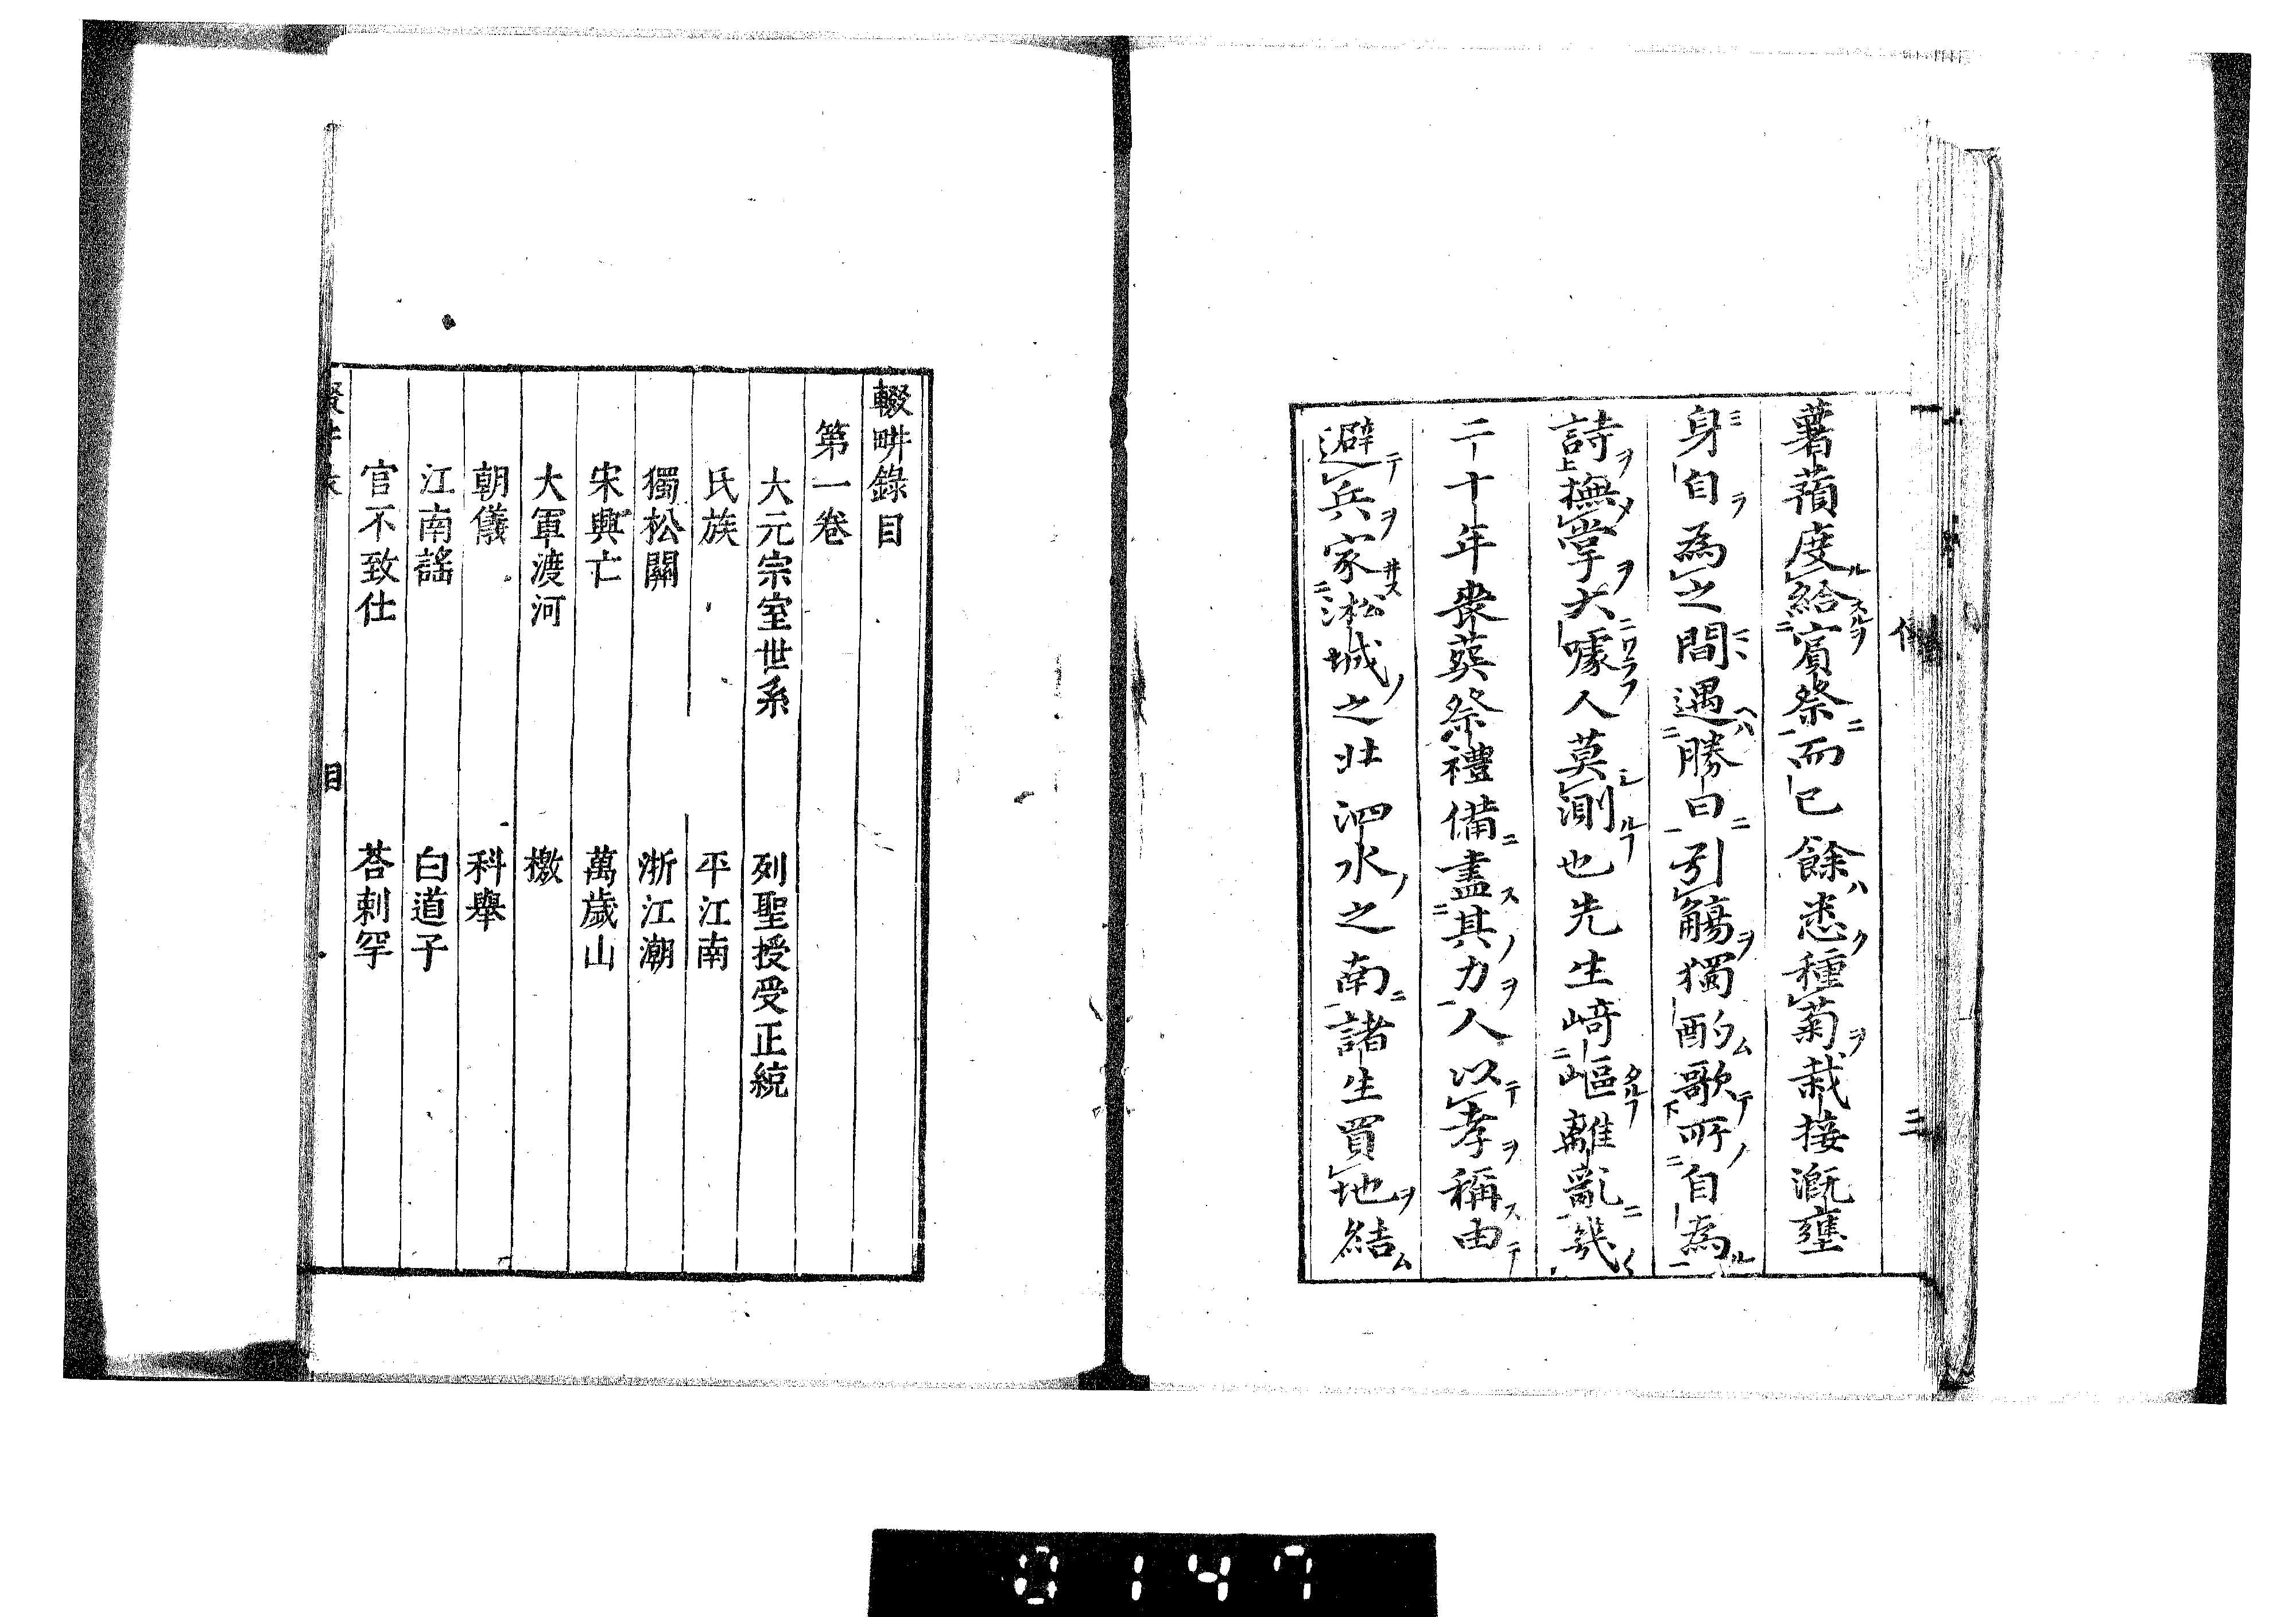 薯蕷度給賓祭而已餘悉種菊栽接漑壅
身自為之間遇勝日引觴獨酌歌所自為
詩撫掌大噱人莫測也先生崎嶇離亂幾
二十年喪葬祭禮備盡其力人以孝稱由
避兵家淞城之北泗水之南諸生買地結
輟畊錄目
第一卷
大元宗室世系 列聖授受正統
氏族 平江南
獨松關 浙江潮
宋興亡 萬歲山
大軍渡河 檄
朝儀 科舉
江南謠 白道子
官不致仕 荅剌罕
目
0147